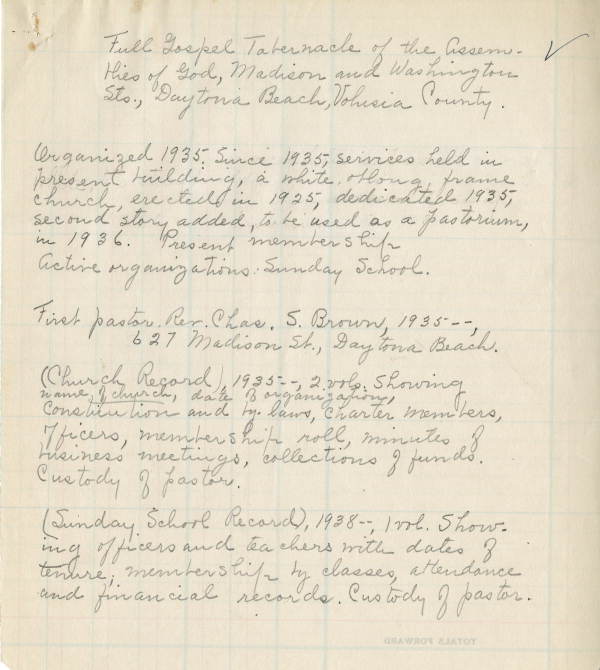 Full Gospel Tabernacle of the Assem-
blies of God, Madison and Washington
Sts., Daytona Beach, Volusia County.
Organized 1935. Since 1935, services held in
present building, a white oblong frame
church, erected in 1925, dedicated 1935,
second story added, to be used as a pastorium,
in 1936. Present membership
Active organizations: Sunday School.
First pastor. Rev. Chas. S. Brown, 1935--,
627 Madison St., Daytona Beach.
(Church Record), 1935--, 2 vols. Showing
name of church, date of organization,
Constitution and by-laws, Charter members,
officers, membership roll, minutes of
business meetings, collections of funds.
Custody of pastor.
(Sunday School Record), 1938--, 1 vol. Show-
ing officers and teachers with dates of
tenure; membership by classes, attendance
and financial records. Custody of pastor.
TOTALS FORWARD